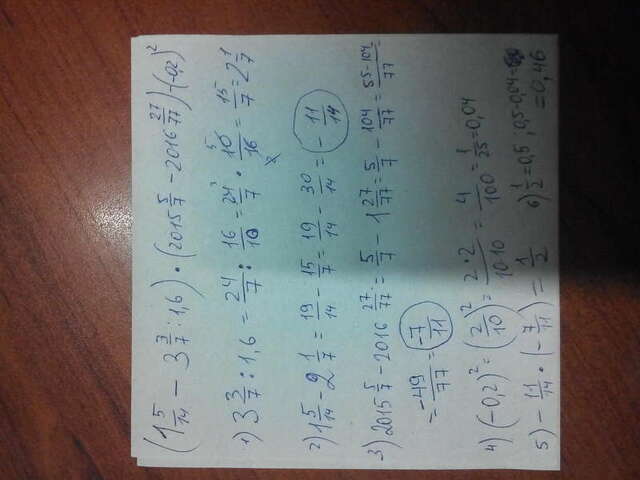 (1 5/14 − 3 3/7 : 1,6) · (2015 5/7 − 2016 27/77) − (−0,2)²
1) 3 3/7 : 1,6 = 24/7 : 16/10 = 24/7 · 10/16 = 15/7 = 2 1/7
2) 1 5/14 − 2 1/7 = 19/14 − 15/7 = 19/14 − 30/14 = − 11/14
3) 2015 5/7 − 2016 27/77 = 5/7 − 1 27/77 = 5/7 − 104/77 = 55−104/77
= −49/77 = −7/11
4) (−0,2)² = (2/10)² = 2·2/10·10 = 4/100 = 1/25 = 0,04
5) − 11/14 · (− 7/11) = 1/2 6) 1/2 = 0,5 ; 0,5−0,04=
= 0,46